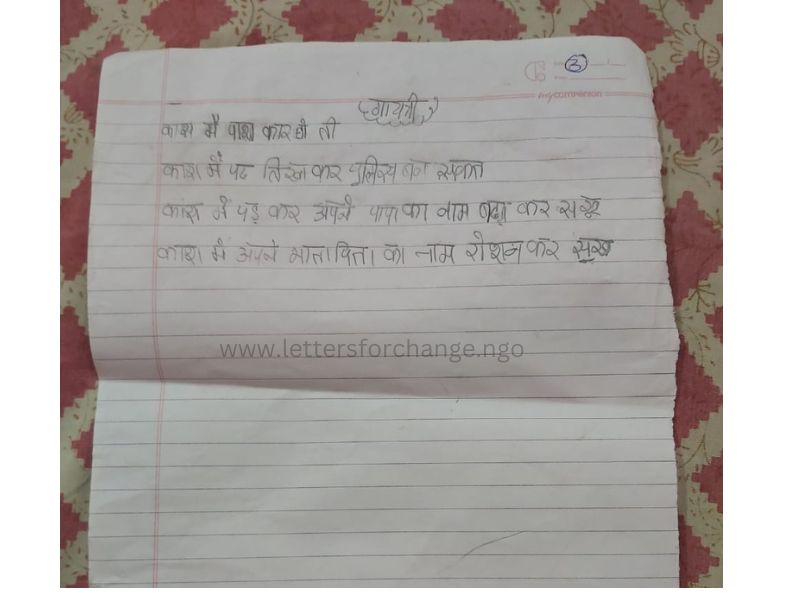 3
mycompanion
(गायत्री)
काश मै पाश कार घी ती
काश मैं पढ लिख कर पुलिस्य बन स्पकत
काश मैं पड़ कर अपने पापा का नाम बढ़ा कर सकू
काश मैं अपने माता पिता का नाम रोशन कर सुख
www.lettersforchange.ngo